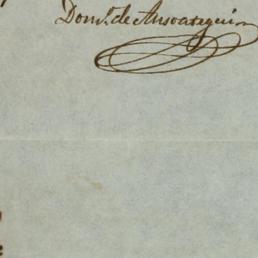 Domº. de Ansoategui